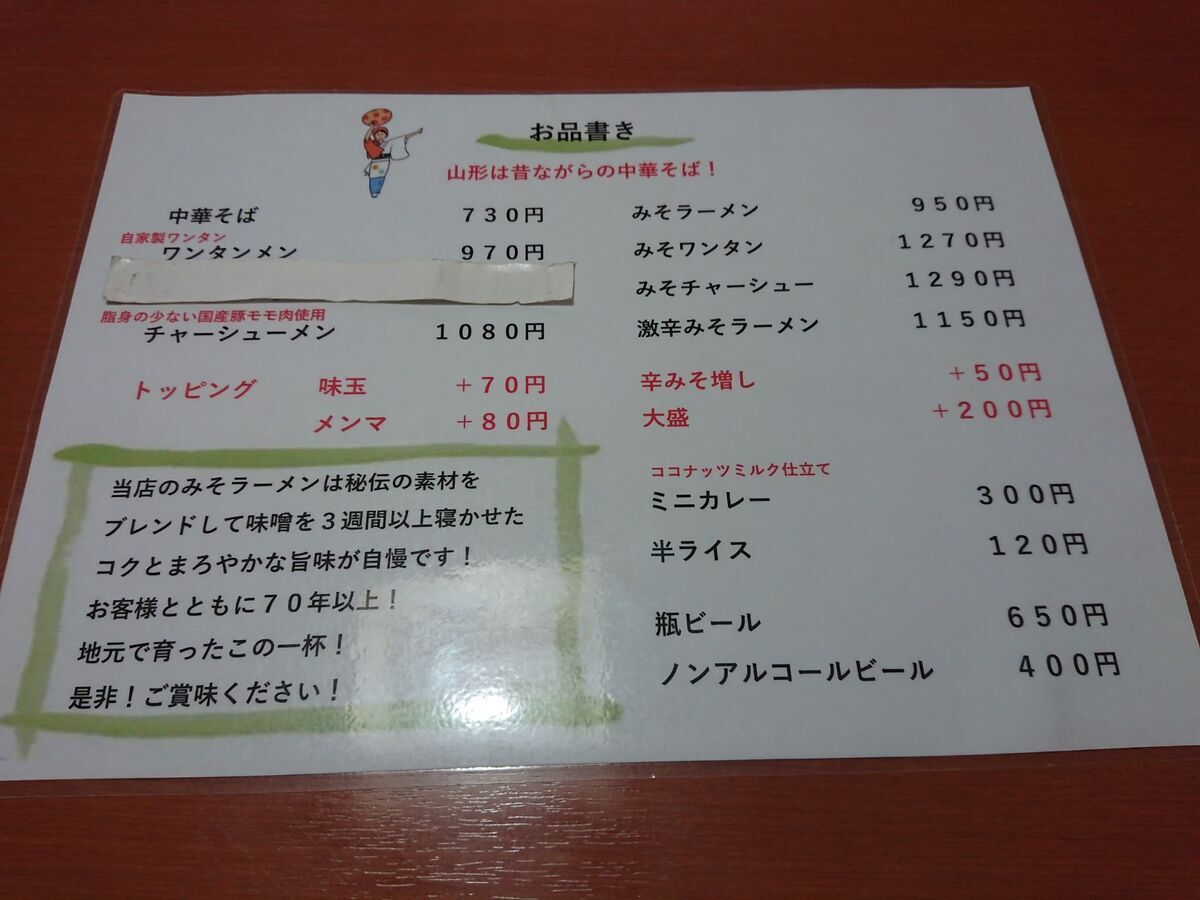 お品書き
山形は昔ながらの中華そば！
中華そば ７３０円
自家製ワンタン
ワンタンメン ９７０円
脂身の少ない国産豚モモ肉使用
チャーシューメン １０８０円
トッピング 味玉 ＋７０円
メンマ ＋８０円
当店のみそラーメンは秘伝の素材を
ブレンドして味噌を３週間以上寝かせた
コクとまろやかな旨味が自慢です！
お客様とともに７０年以上！
地元で育ったこの一杯！
是非！ご賞味ください！
みそラーメン ９５０円
みそワンタン １２７０円
みそチャーシュー １２９０円
激辛みそラーメン １１５０円
辛みそ増し ＋５０円
大盛 ＋２００円
ココナッツミルク仕立て
ミニカレー ３００円
半ライス １２０円
瓶ビール ６５０円
ノンアルコールビール ４００円